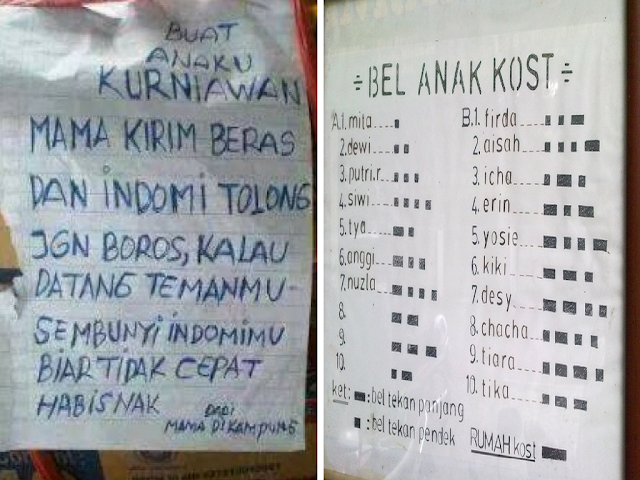 BUAT
ANAKU
KURNIAWAN
MAMA KIRIM BERAS
DAN INDOMI TOLONG
JGN BOROS, KALAU
DATANG TEMANMU
SEMBUNYI INDOMIMU
BIAR TIDAK CEPAT
HABIS NAK
DARI
MAMA DIKAMPUNG
÷BEL ANAK KOST÷
A.1. mita
2. dewi
3. putri.r
4. siwi
5. tya
6. anggi
7. nuzla
8.
9.
10.
B.1. firda
2. aisah
3. icha
4. erin
5. yosie
6. kiki
7. desy
8. chacha
9. tiara
10. tika
ket: : bel tekan panjang
: bel tekan pendek
RUMAH kost